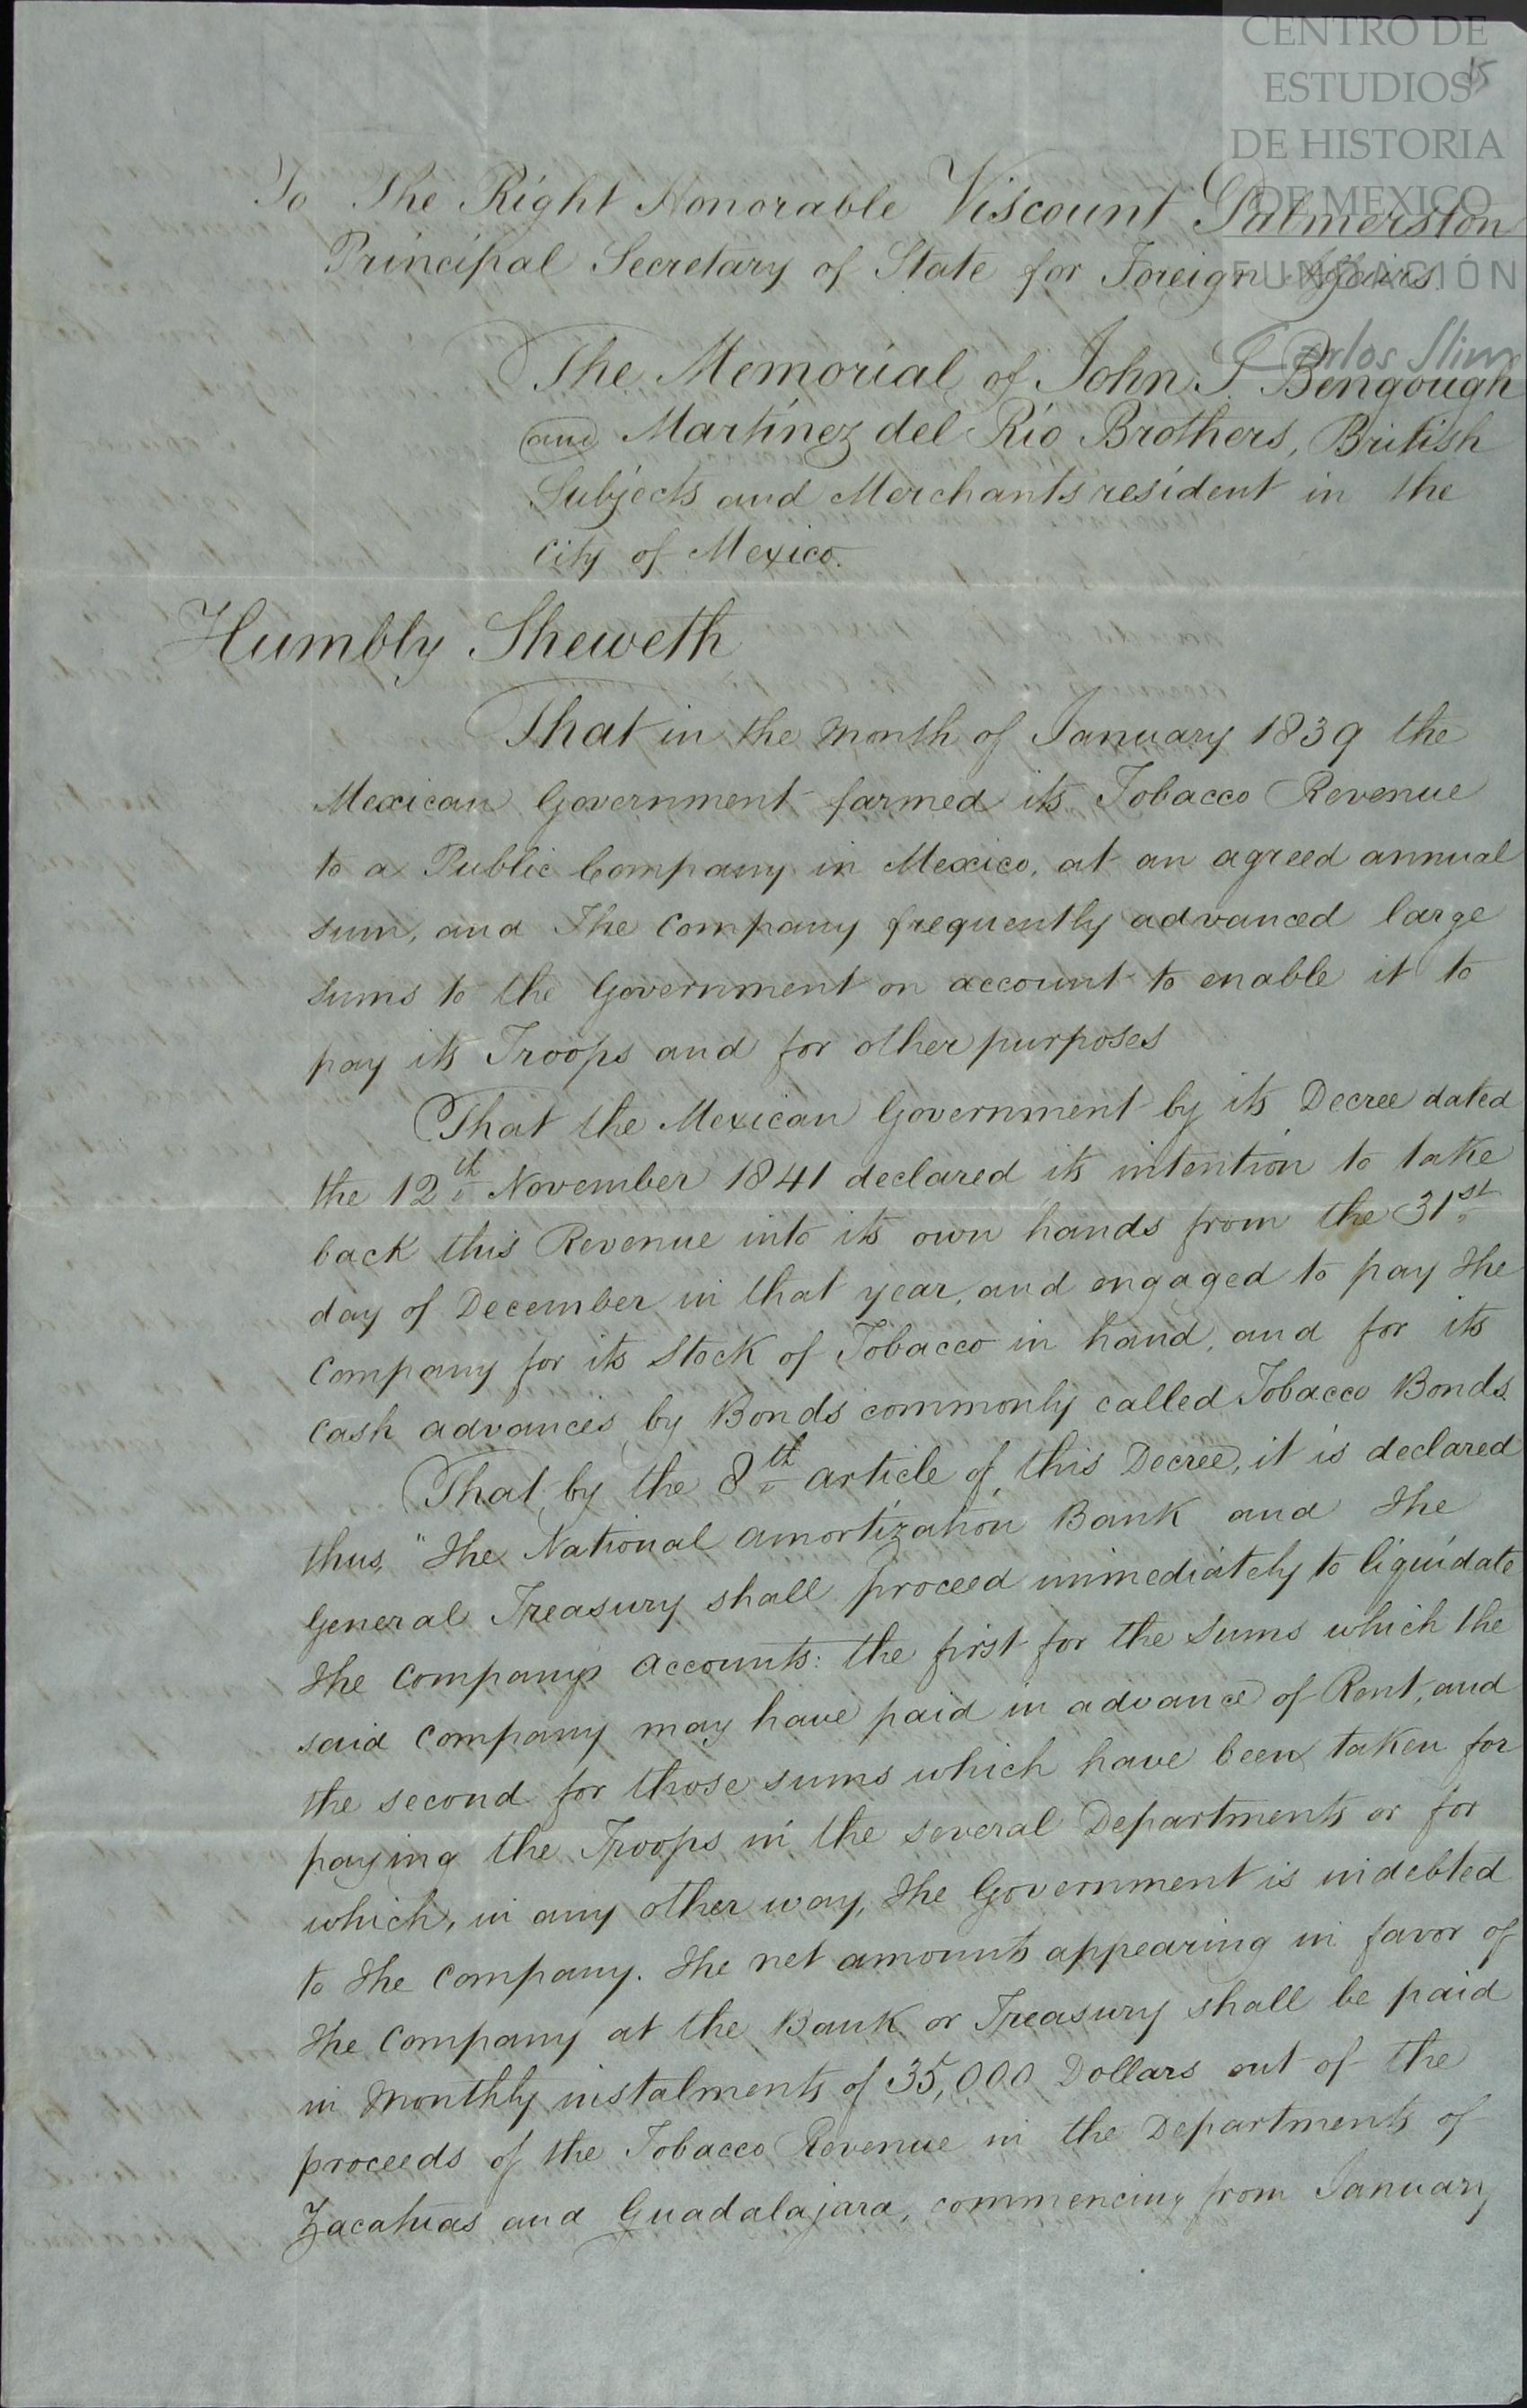 CENTRO DE
ESTUDIOS
DE HISTORIA
DE MEXICO
FUNDACIÓN
Carlos Slim
15
To The Right Honorable Viscount Palmerston
Principal Secretary of State for Foreign Affairs.
The Memorial of John S. Bengough
and Martínez del Río Brothers, British
Subjects and Merchants resident in the
City of Mexico.
Humbly Sheweth
That in the month of January 1839 the
Mexican Government farmed its Tobacco Revenue
to a Public Company in Mexico, at an agreed annual
sum, and the Company frequently advanced large
sums to the Government on account to enable it to
pay its Troops and for other purposes
That the Mexican Government by its Decree dated
the 12th November 1841 declared its intention to take
back this Revenue into its own hands from the 31st
day of December in that year, and engaged to pay the
Company for its Stock of Tobacco in hand, and for its
Cash advances by Bonds commonly called Tobacco Bonds.
That by the 8th article of this Decree, it is declared
thus, "The National Amortization Bank and the
General Treasury shall proceed immediately to liquidate
the Companys accounts: the first for the Sums which the
said Company may have paid in advance of Rent, and
the second for those sums which have been taken for
paying the Troops in the several Departments or for
which, in any other way, the Government is indebted
to the Company. The net amounts appearing in favor of
the Company at the Bank or Treasury shall be paid
in Monthly instalments of 35,000 Dollars out of the
proceeds of the Tobacco Revenue in the Departments of
Zacatecas and Guadalajara, commencing from January